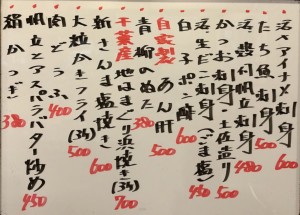 活〆アイナメ刺身 600
たち魚刺身 500
活〆帆立刺身 480
かつお刺身 土佐造り 500
活生だこ刺身(ごま塩) 450
白子ポン酢 600
自家製 あん肝 500
青柳のぬた 380
千葉産 地はまぐり浜焼き(3ケ) 700
新さんま塩焼き 600
大粒かきフライ(3ケ) 500
肉どうふ 400
帆立とアスパラバター炒め 450
絹かつぎ 380